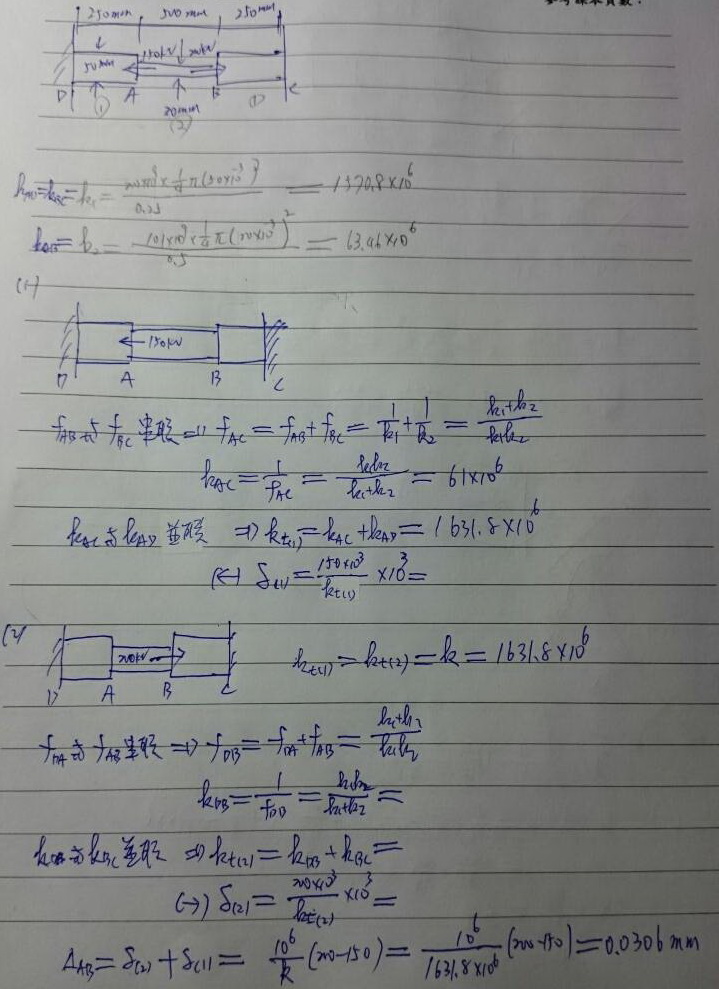 250mm 500mm 250mm
50mm 150kN 200kN
D A B C
(1) 20mm (1)
(2)
k_AD=k_BC=k₁= 200×10⁹×1/4π(50×10⁻³)²/0.25 = 1570.8×10⁶
k_AB= k₂= 101×10⁹×1/4π(20×10⁻³)²/0.5 = 63.46×10⁶
(1)
←150kN
D A B C
f_AB與f_BC串联 ⇒ f_AC = f_AB+f_BC = 1/k₁+1/k₂ = k₁+k₂/k₁k₂
k_AC = 1/f_AC = k₁k₂/k₁+k₂ = 61×10⁶
k_AC與k_AD並联 ⇒ k_t(1)=k_AC+k_AD=1631.8×10⁶
(←) δ_(1)=150×10³/k_t(1) ×10³=
(2)
200kN→ k_t(1)=k_t(2)=k=1631.8×10⁶
D A B C
f_DA與f_AB串联 ⇒ f_DB=f_DA+f_AB=k₁+k₂/k₁k₂
k_DB=1/f_DB=k₁k₂/k₁+k₂=
k_DB與k_BC並联 ⇒ k_t(2)=k_DB+k_BC=
(→) δ_(2)=200×10³/k_t(2) ×10³=
Δ_AB=δ_(2)+δ_(1)= 10⁶/k(200-150)=10⁶/1631.8×10⁶(200-150)=0.0306mm